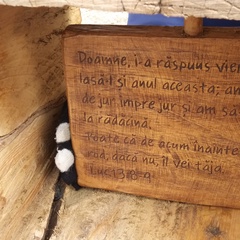 Doamne, i-a răspuns vier
lasă-l și anul acesta; am
dejur împrejur și am să
la rădăcină.
Poate că de acum înainte
rod, dacă nu, îl vei tăia.
Luc 13:8-9